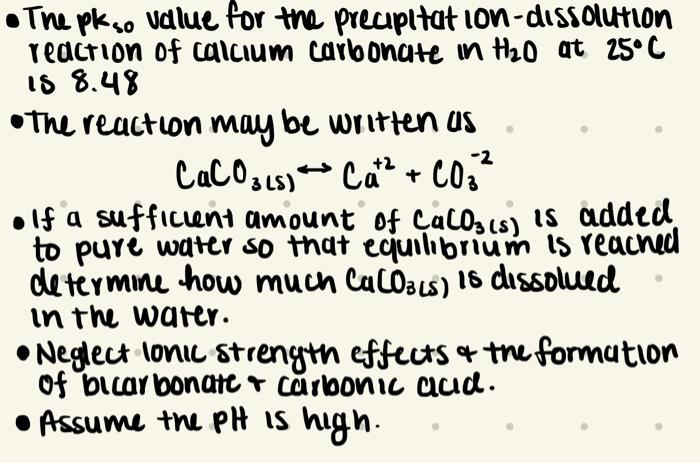 • The pKso value for the precipitation-dissolution
reaction of calcium carbonate in H2O at 25°C
is 8.48
• The reaction may be written as
CaCO3(s) ↔ Ca+2 + CO3-2
• If a sufficient amount of CaCO3(s) is added
to pure water so that equilibrium is reached
determine how much CaCO3(s) is dissolved
in the water.
• Neglect ionic strength effects & the formation
of bicarbonate & carbonic acid.
• Assume the pH is high.